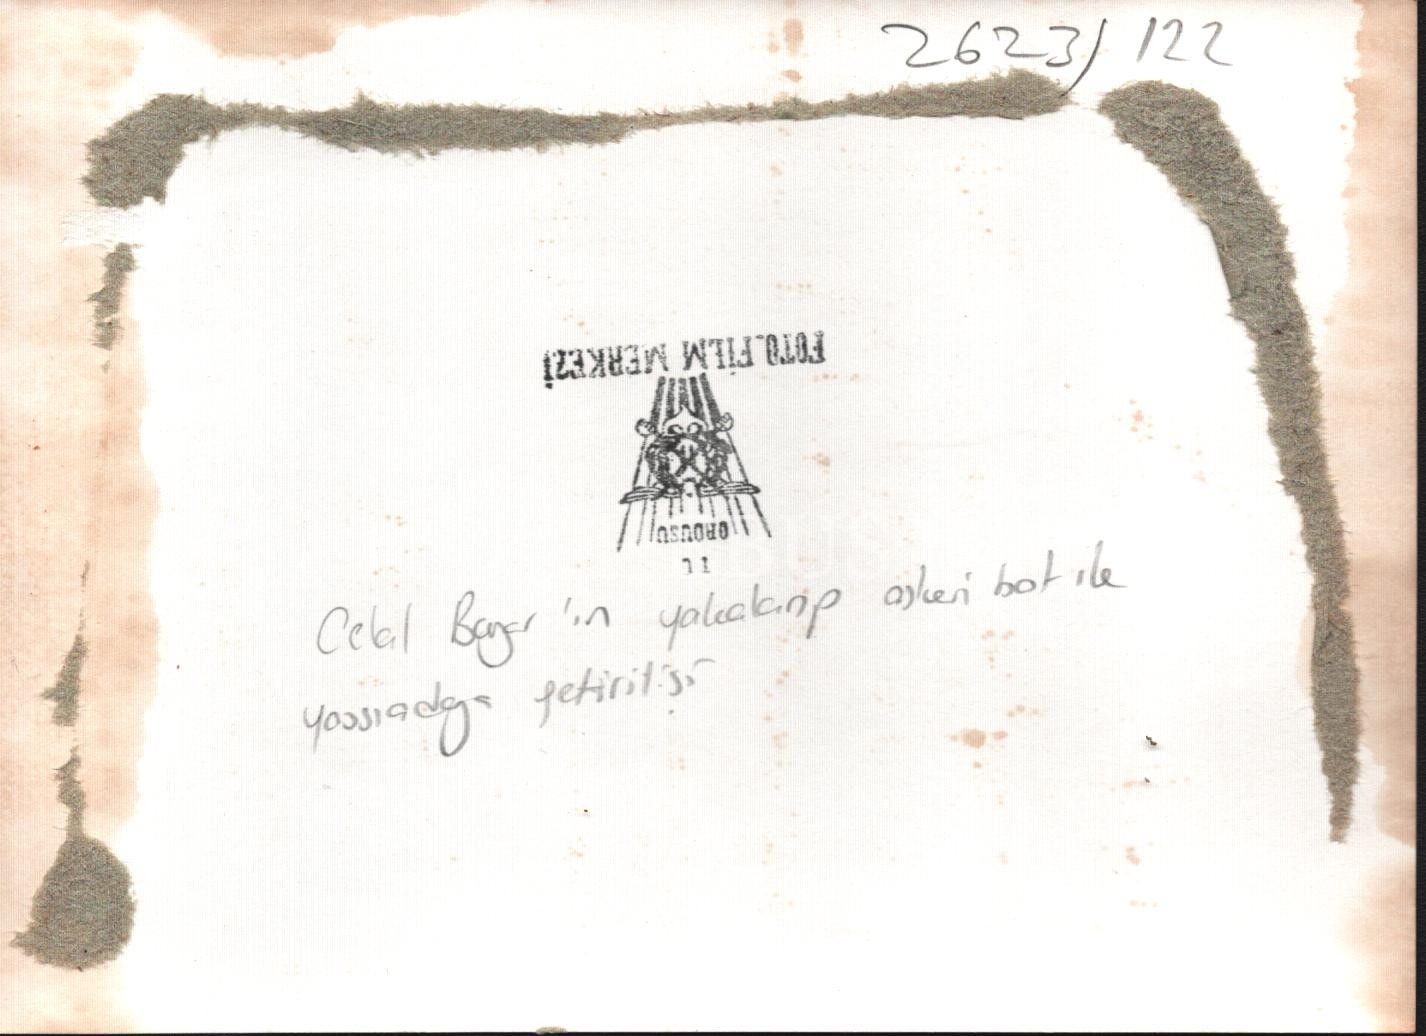 2623/122
FOTO.FİLM MERKEZİ
ORDUSU
Celal Bayar'ın yakalanıp askeri bot ile
yassıadaya getirilişi